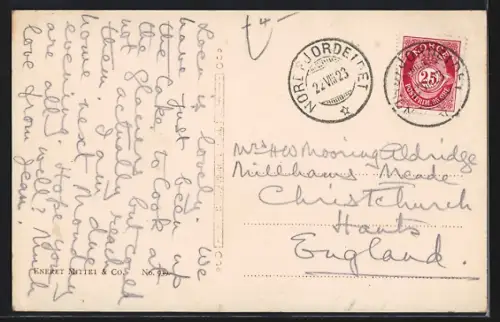 Loen is lovely. We
have just been up
the lake to look at
the glaciers but could
not actually reach
them. I am due
home next Monday
evening. Hope you
are all well? Much
love from Jean.
ENERET MITTET & Co. No.
NORDFJORDEIDET
22 VIII 23
NORGE
25
POSTFRIM.
Mrs H W Mooring Aldridge
Millhams Meade
Christchurch
Hants
England.